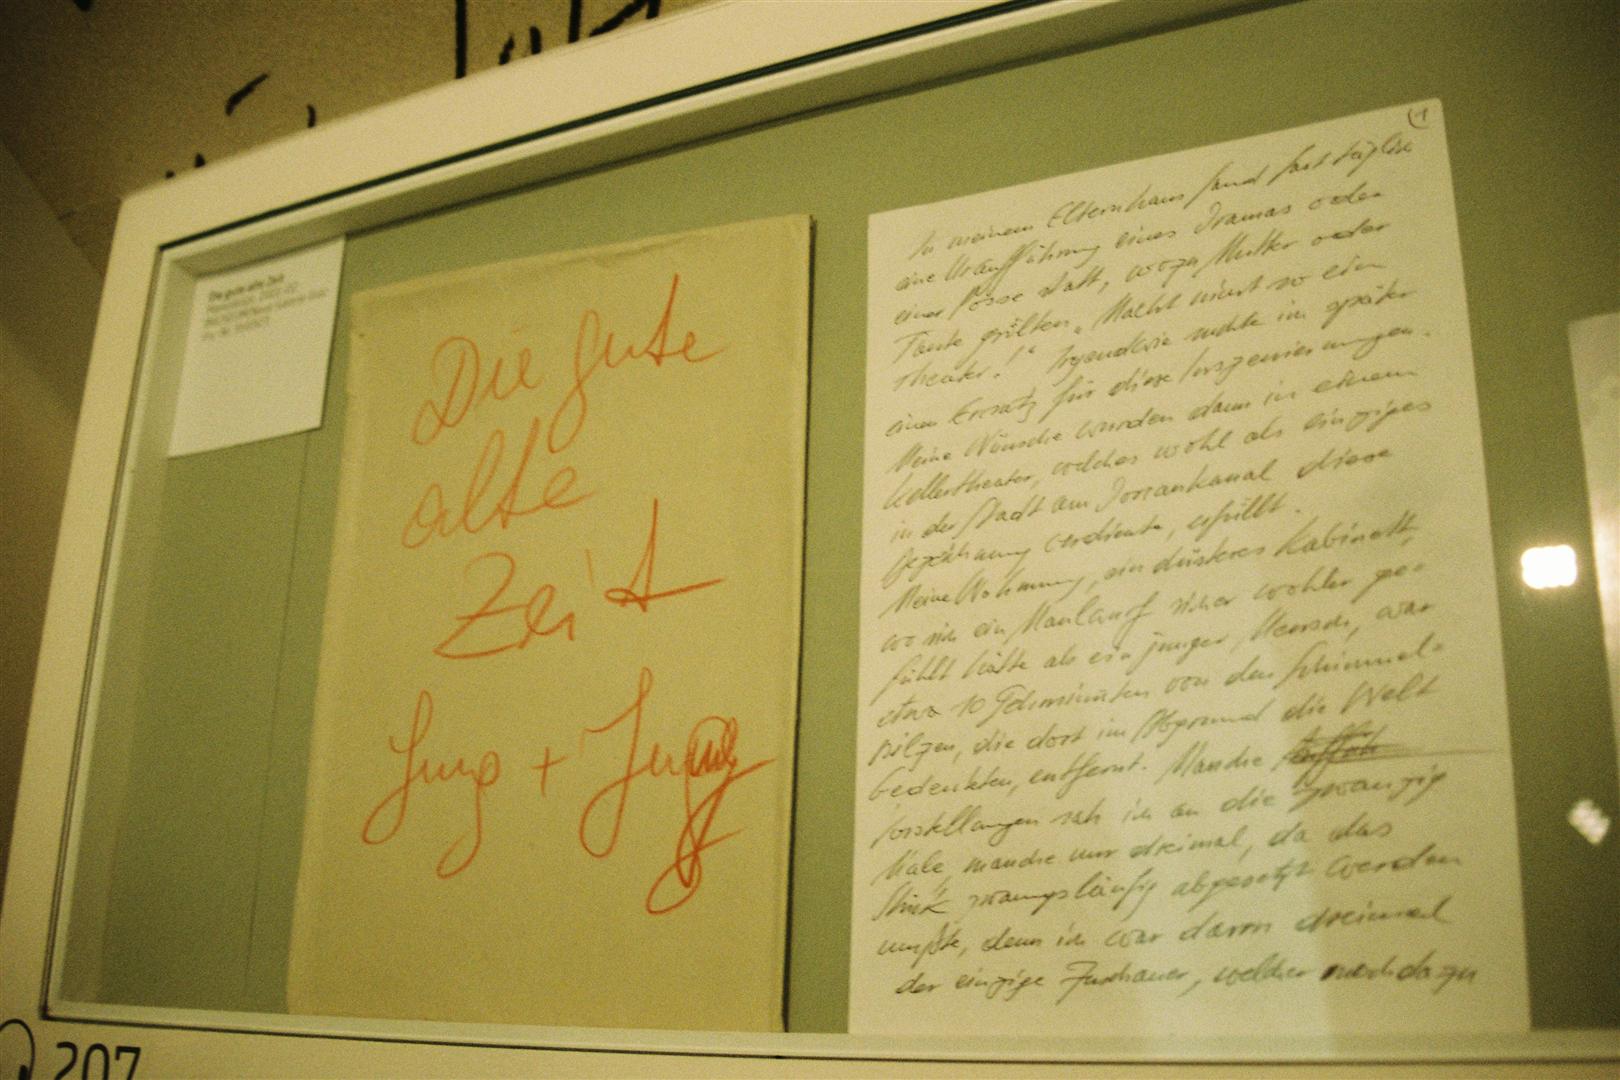 Die gute alte Zeit
Die gute
alte
Zeit
Jung + Jung
(1
In meinem Elternhaus fand fast täglich
eine Uraufführung eines Dramas oder
einer Posse statt, wozu Mutter oder
Tante grillten, "Macht nicht so ein
Theater!" Irgendwie suchte ich später
einen Ersatz für diese Inszenierungen.
Meine Wünsche wurden dann in einem
Kellertheater, welches wohl als einziges
in der Stadt am Donaukanal diese
Bezeichnung verdiente, erfüllt.
Meine Wohnung, ein düsteres Kabinett,
wo sich ein Maulwurf sicher wohler ge=
fühlt hätte als ein junger Mensch, war
etwa 10 Gehminuten von den Schimmel=
pilzen, die dort im Abgrund die Welt
bedeuteten, entfernt. Manche
Vorstellungen sah ich an die zwanzig
Male, manche nur dreimal, da das
Stück zwangsläufig abgesetzt werden
mußte, denn ich war dann dreimal
der einzige Zuschauer, welcher noch dazu
207